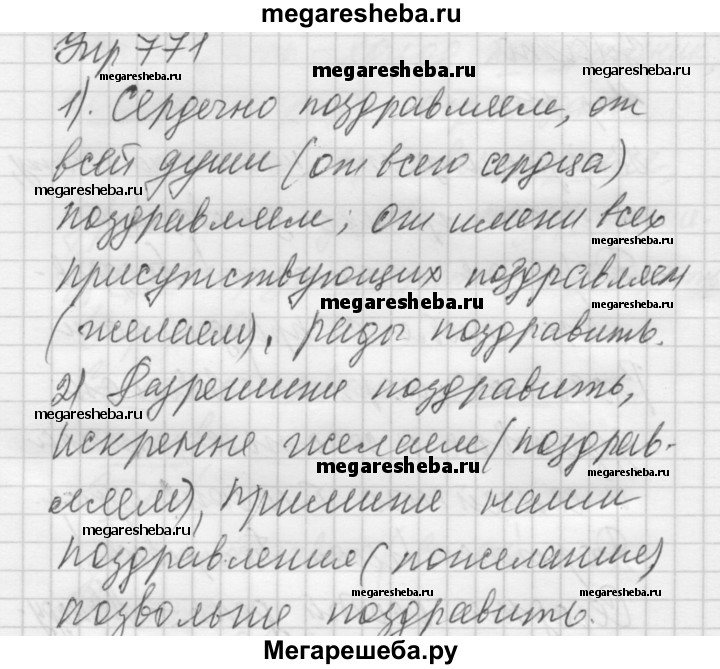 megaresheba.ru
Упр 771
megaresheba.ru
megaresheba.ru
1). Сердечно поздравляем, от
megaresheba.ru
всей души (от всего сердца)
megaresheba.ru
поздравляем; от имени всех
megaresheba.ru
присутствующих поздравляем
megaresheba.ru
megaresheba.ru
(желаем), рады поздравить.
2) Разрешите поздравить,
megaresheba.ru
искренне желаем (поздрав-
megaresheba.ru
megaresheba.ru
ляем), примите наши
megaresheba.ru
поздравления (пожелание)
megaresheba.ru
megaresheba.ru
позвольте поздравить.
Мегарешеба.ру